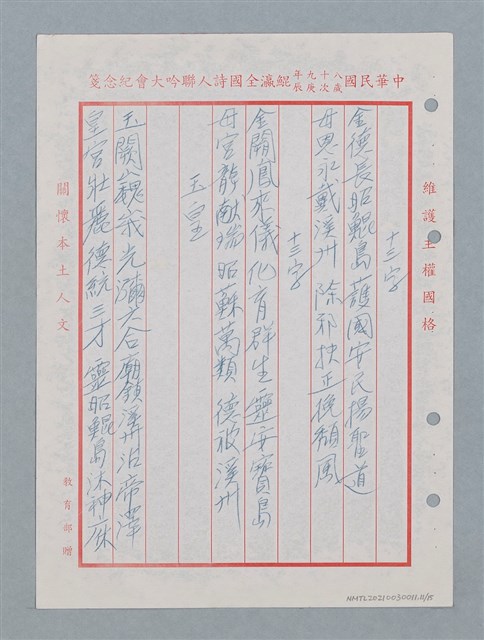 中華民國八十九年歲次庚辰鯤瀛全國詩人聯吟大會紀念箋
維護主權國格
十三字
金德長昭鯤島護國安民揚聖道
母恩永戴溪州除邪扶正挽頹風
十三字
金開鳳來儀化育群生靈安寶島
母宮龍獻瑞昭蘇萬類德被溪州
玉皇
玉闕巍峩光彌六合廟鎮溪州沾帝澤
皇宮壯麗德統三才靈昭鯤島沐神庥
關懷本土人文
教育部贈
NMTL20210030011.11/15